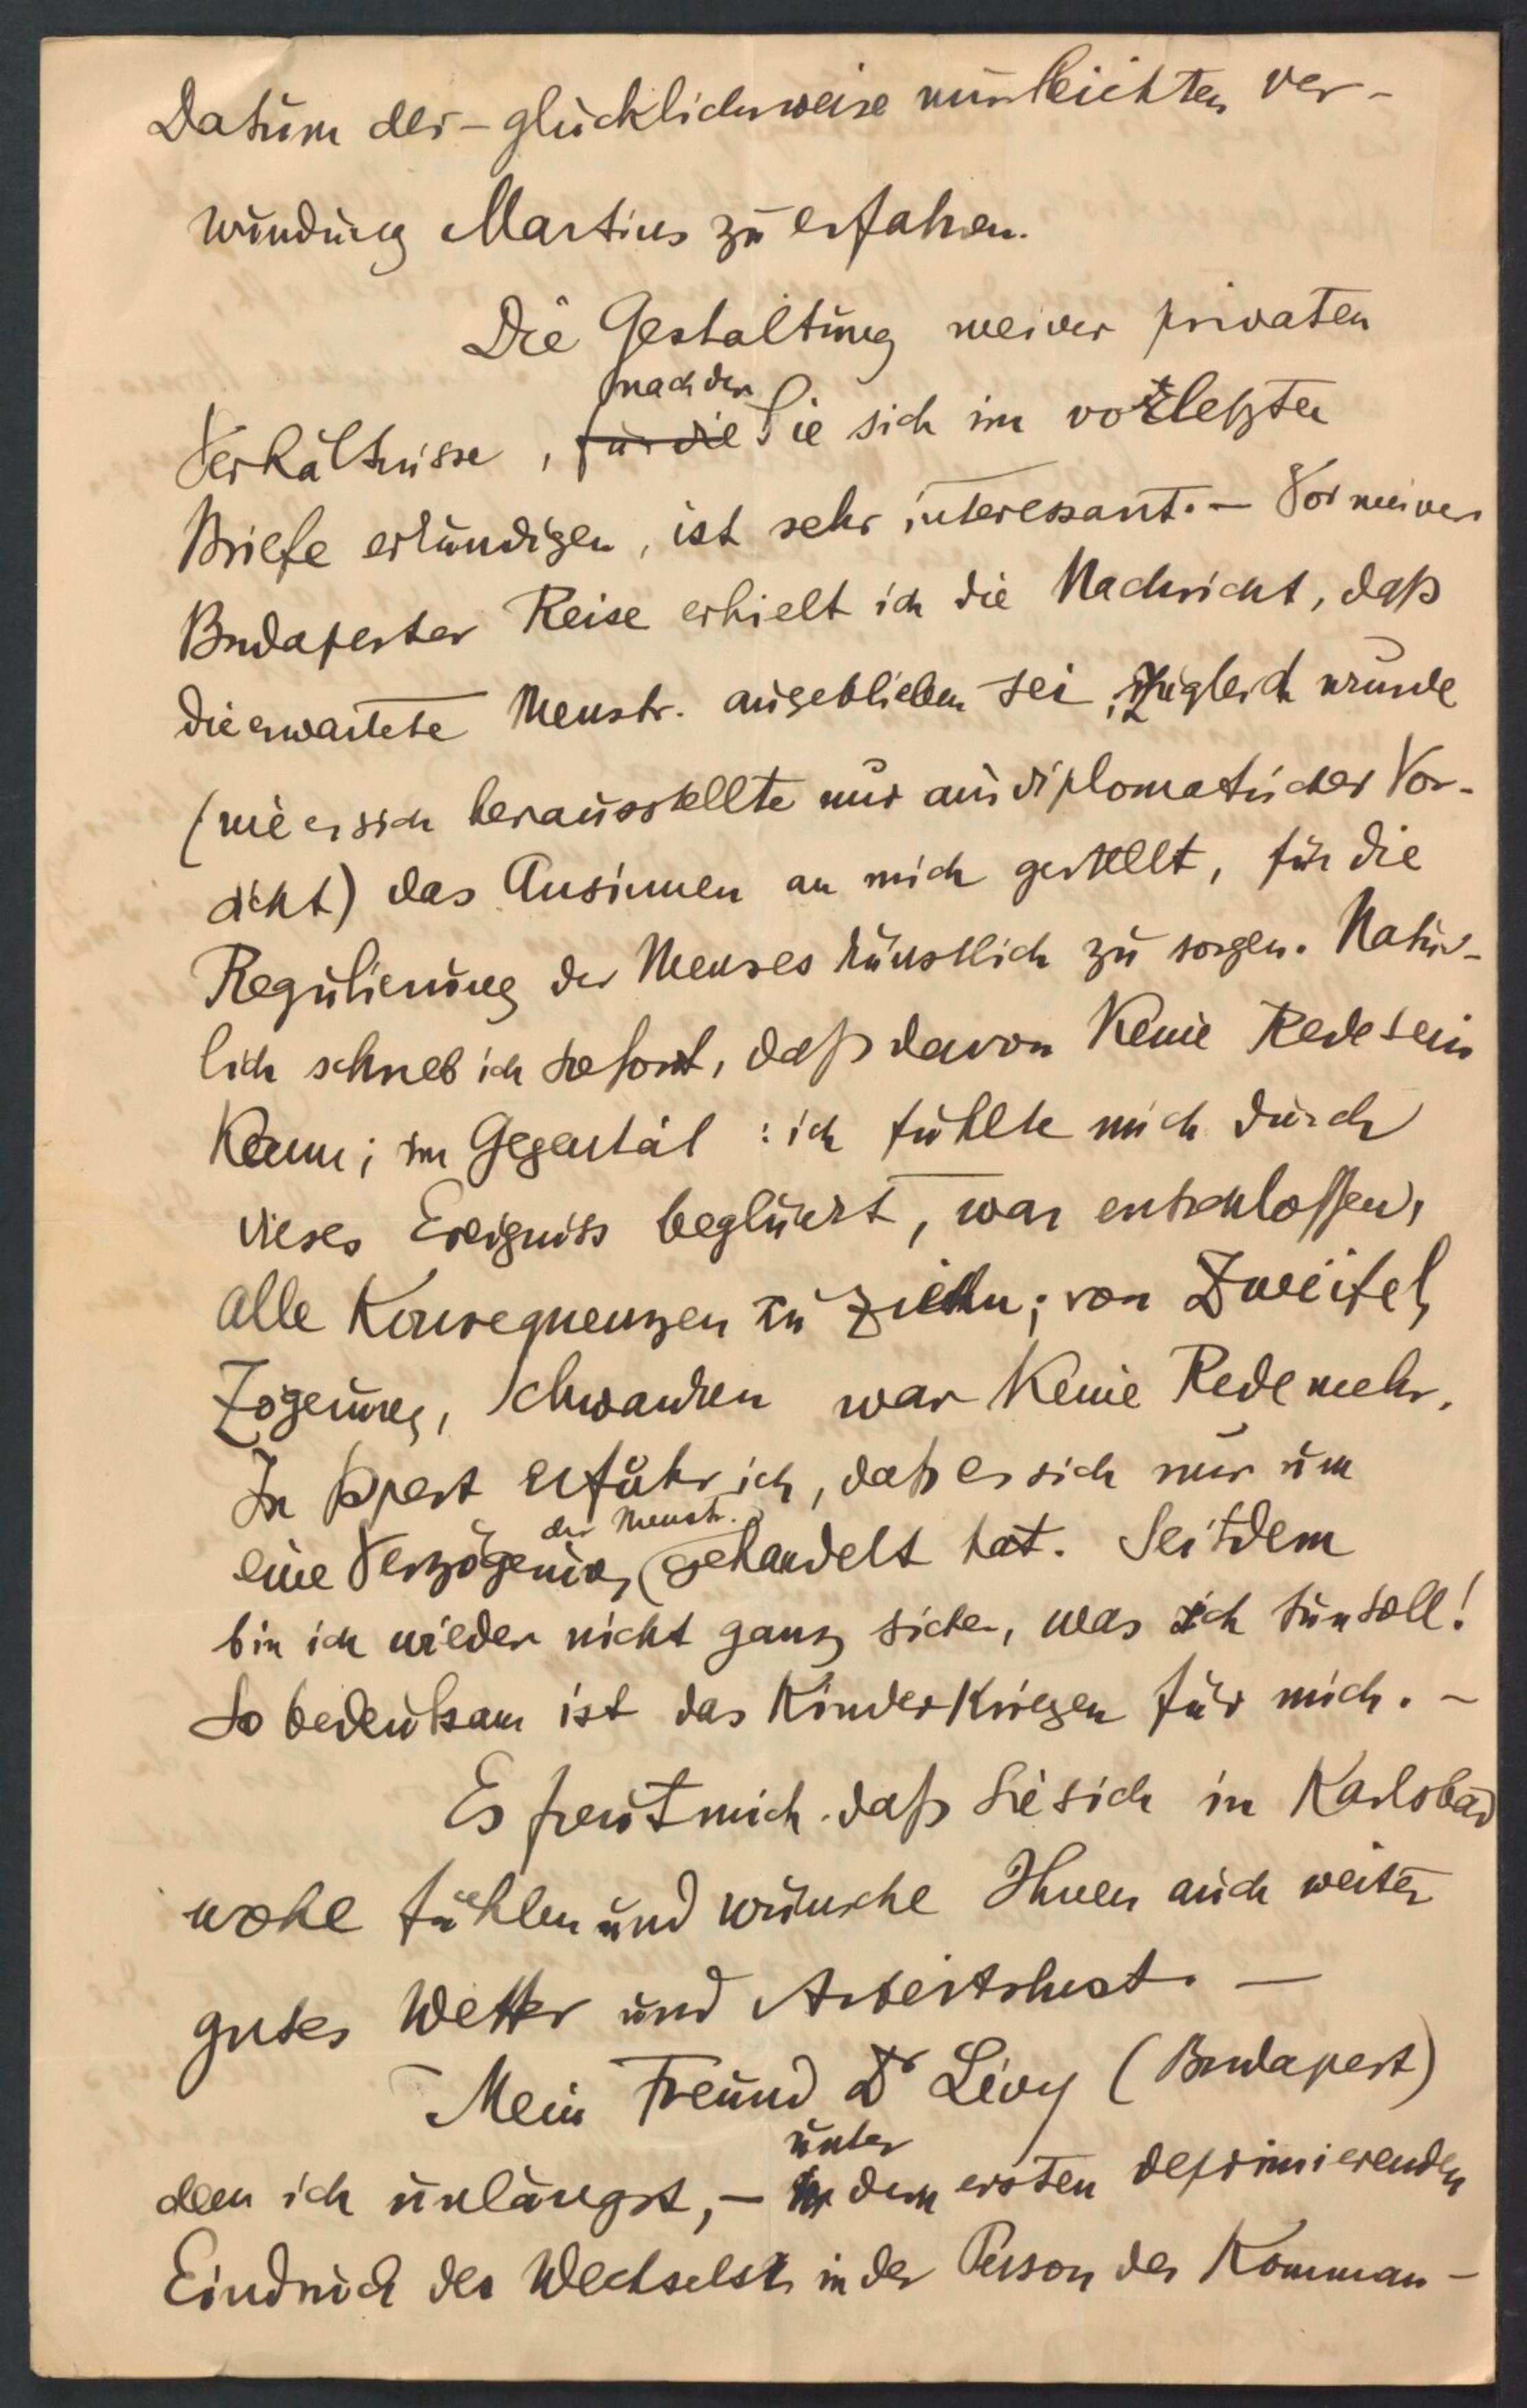 Datum der – glücklicherweise nur leichten Ver-
wundung Martins zu erfahren.
Die Gestaltung meiner privaten
nach der
Verhältnisse, für die Sie sich im vorletzten
Briefe erkundigen, ist sehr interessant. – Vor meiner
Budapester Reise erhielt ich die Nachricht, daß
die erwartete Menstr. ausgeblieben sei; zugleich wurde
(wie es sich herausstellte nur aus diplomatischer Vor-
sicht) das Ansinnen an mich gestellt, für die
Regulierung der Menses künstlich zu sorgen. Natür-
lich schrieb ich sofort, daß davon keine Rede sein
kann; im Gegenteil: ich fühlte mich durch
dieses Ereigniss beglückt, war entschlossen,
alle Konsequenzen zu ziehen; von Zweifel,
Zögerung, Schwanken war keine Rede mehr.
In Bpest erfuhr ich, daß es sich nur um
der Menstr.
eine Verzögerung gehandelt hat. Seitdem
bin ich wieder nicht ganz sicher, was ich tun soll!
So bedeutsam ist das Kinderkriegen für mich. –
Es freut mich, daß Sie sich in Karlsbad
wohl fühlen und wünsche Ihnen auch weiter
gutes Wetter und Arbeitslust. –
Mein Freund Dr Lévy (Budapest)
unter
dem ich unlängst, – dem ersten deprimierenden
Eindruck des Wechsels in der Person des Komman-